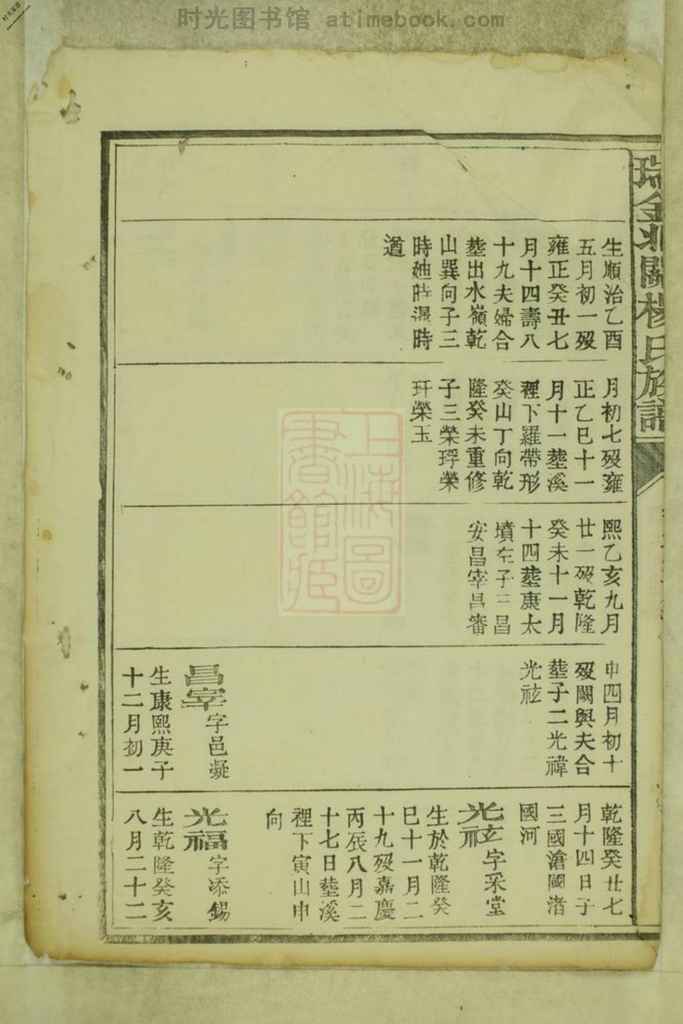 时光图书馆 atimebook.com
瑞金北關楊氏族譜
生順治乙酉
五月初一歿
雍正癸丑七
月十四壽八
十九夫婦合
塟出水嶺乾
山巽向子三
時廸時濕時
道
月初七歿雍
正乙巳十一
月十一塟溪
裡下羅帶形
癸山丁向乾
隆癸未重修
子三榮琈榮
玕榮玉
熙乙亥九月
廿一歿乾隆
癸未十一月
十四塟庚太
墳左子三昌
安昌宰昌審
申四月初十
歿闕與夫合
塟子二光禕
光玹
昌宰字邑凝
生康熙庚子
十二月初一
乾隆癸丑七
月十四日子
三國滄國渚
國河
光玹字采堂
生於乾隆癸
巳十一月二
十九歿嘉慶
丙辰八月二
十七日塟溪
裡下寅山申
向
光福字添錫
生乾隆癸亥
八月二十二